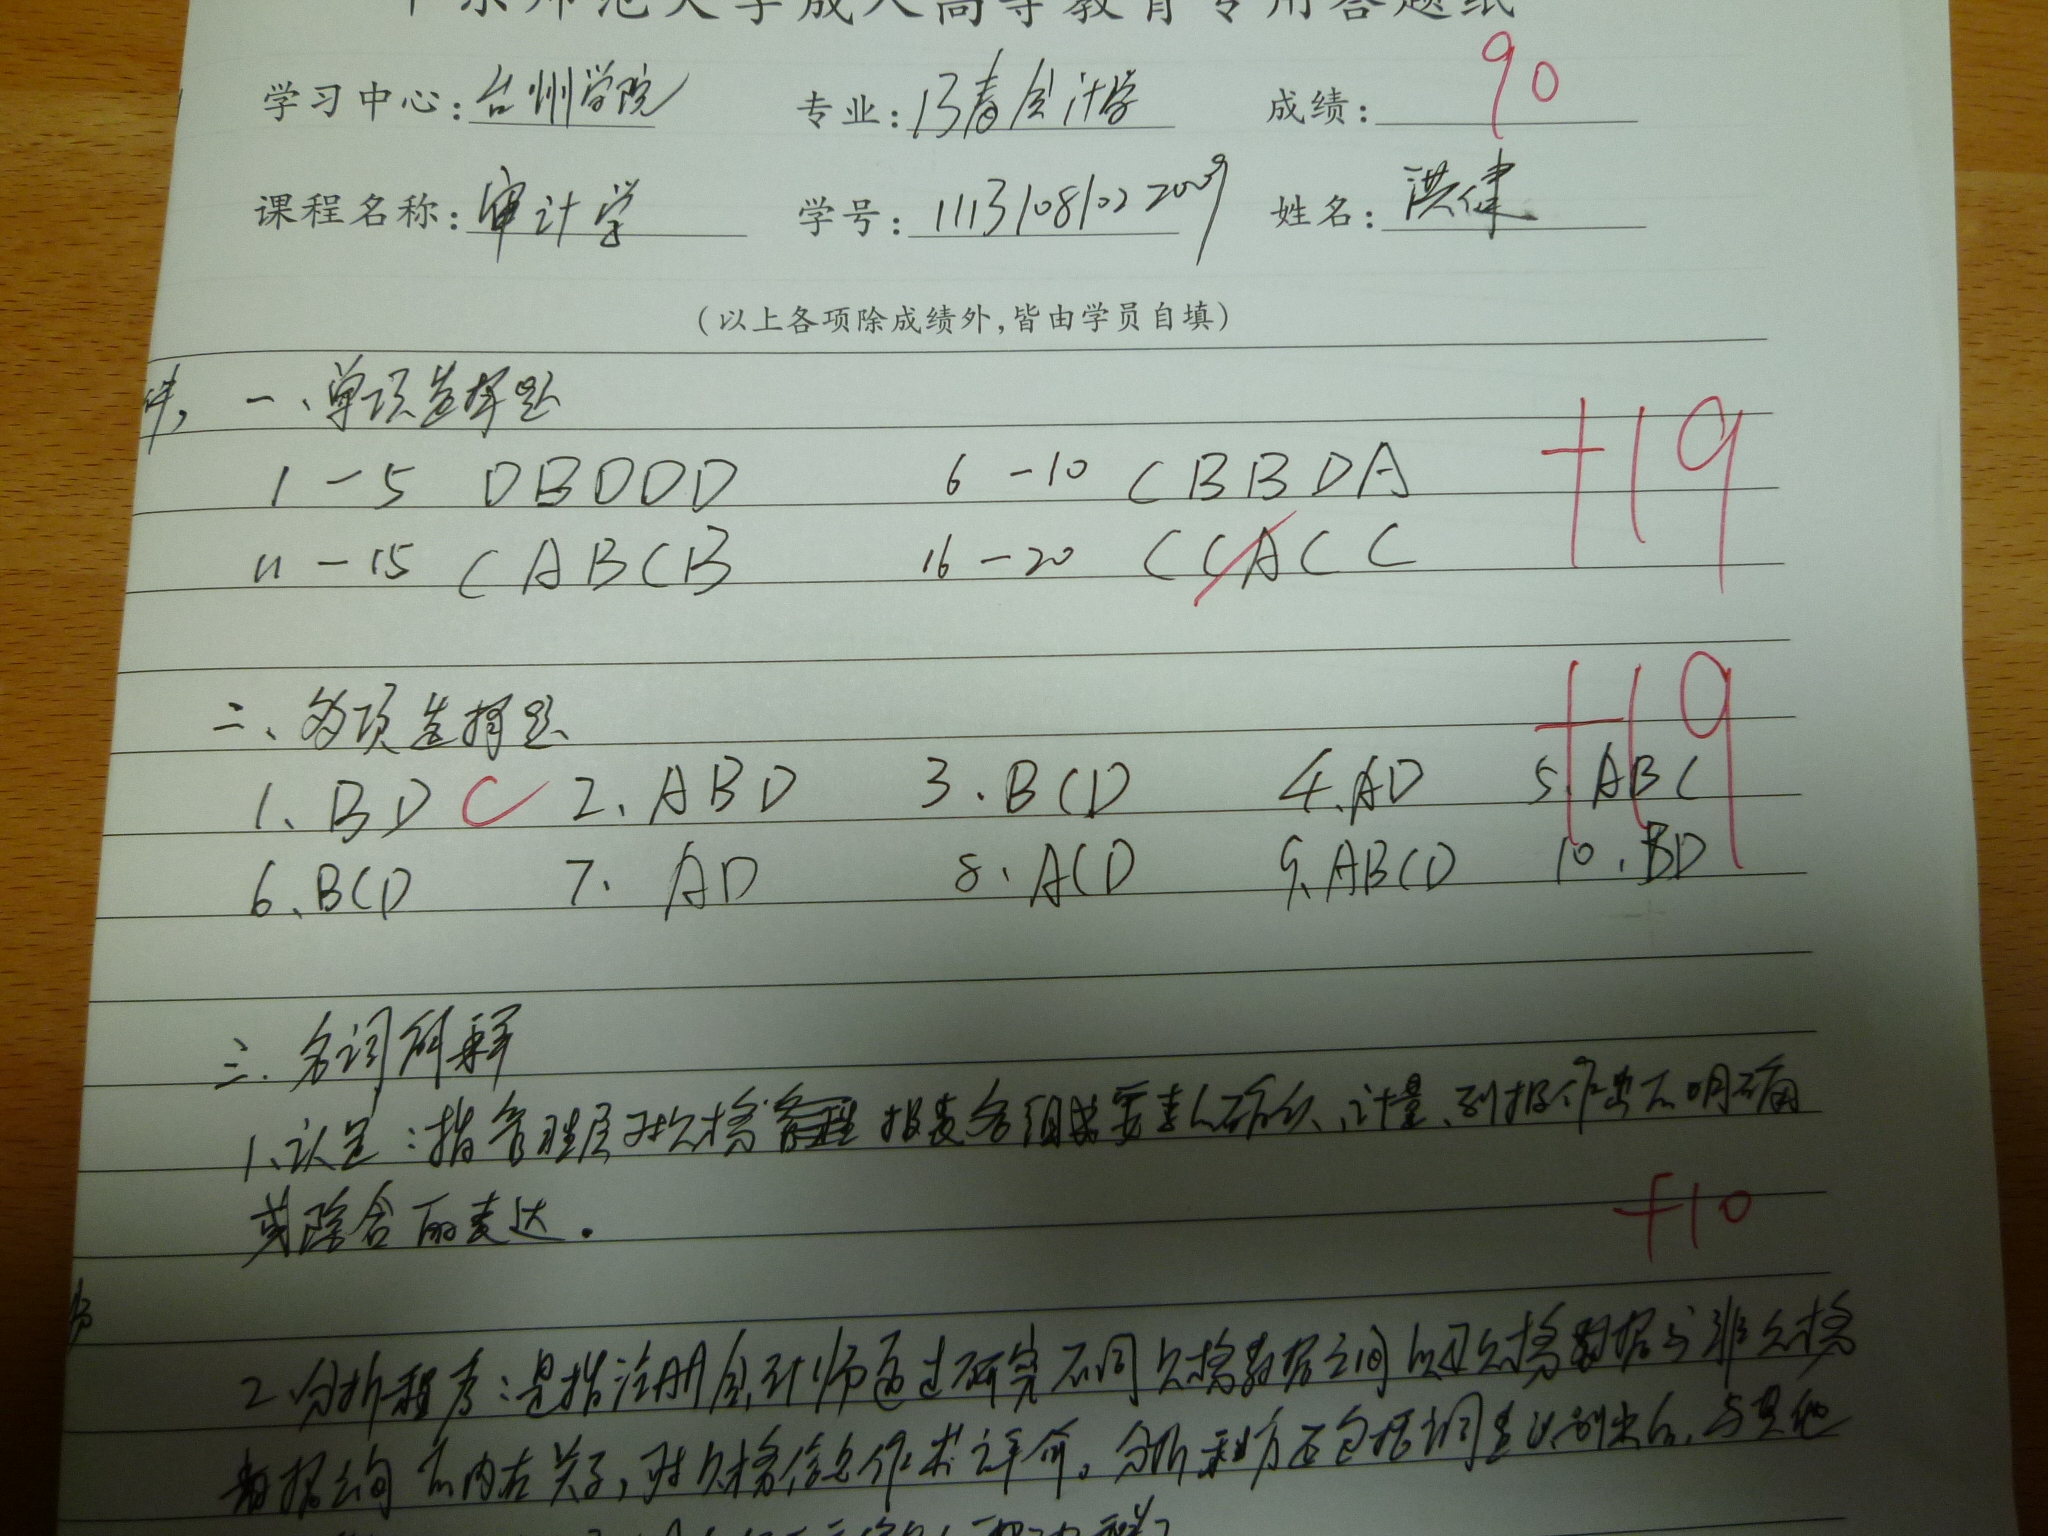 华东师范大学成人高等教育专用答题纸
学习中心:台州学院 专业:13春会计学 成绩:90
课程名称:审计学 学号:111310810222009 姓名:洪健
(以上各项除成绩外,皆由学员自填)
一、单项选择题
1-5 DBDDD 6-10 CBBDA +19
11-15 CABCB 16-20 CCACC
二、多项选择题 +19
1、BD C 2、ABD 3、BCD 4、AD 5、ABC
6、BCD 7、AD 8、ACD 9、ABCD 10、BD
三、名词解释
1、认定:指管理层对财务报表各组成要素确认、计量、列报作出的明确
或隐含的表达。 +10
2、分析程序:是指注册会计师通过研究不同财务数据之间以及财务数据与非财务
数据之间的内在关系,对财务信息作出评价。分析程序还包括调查识别出的、与其他